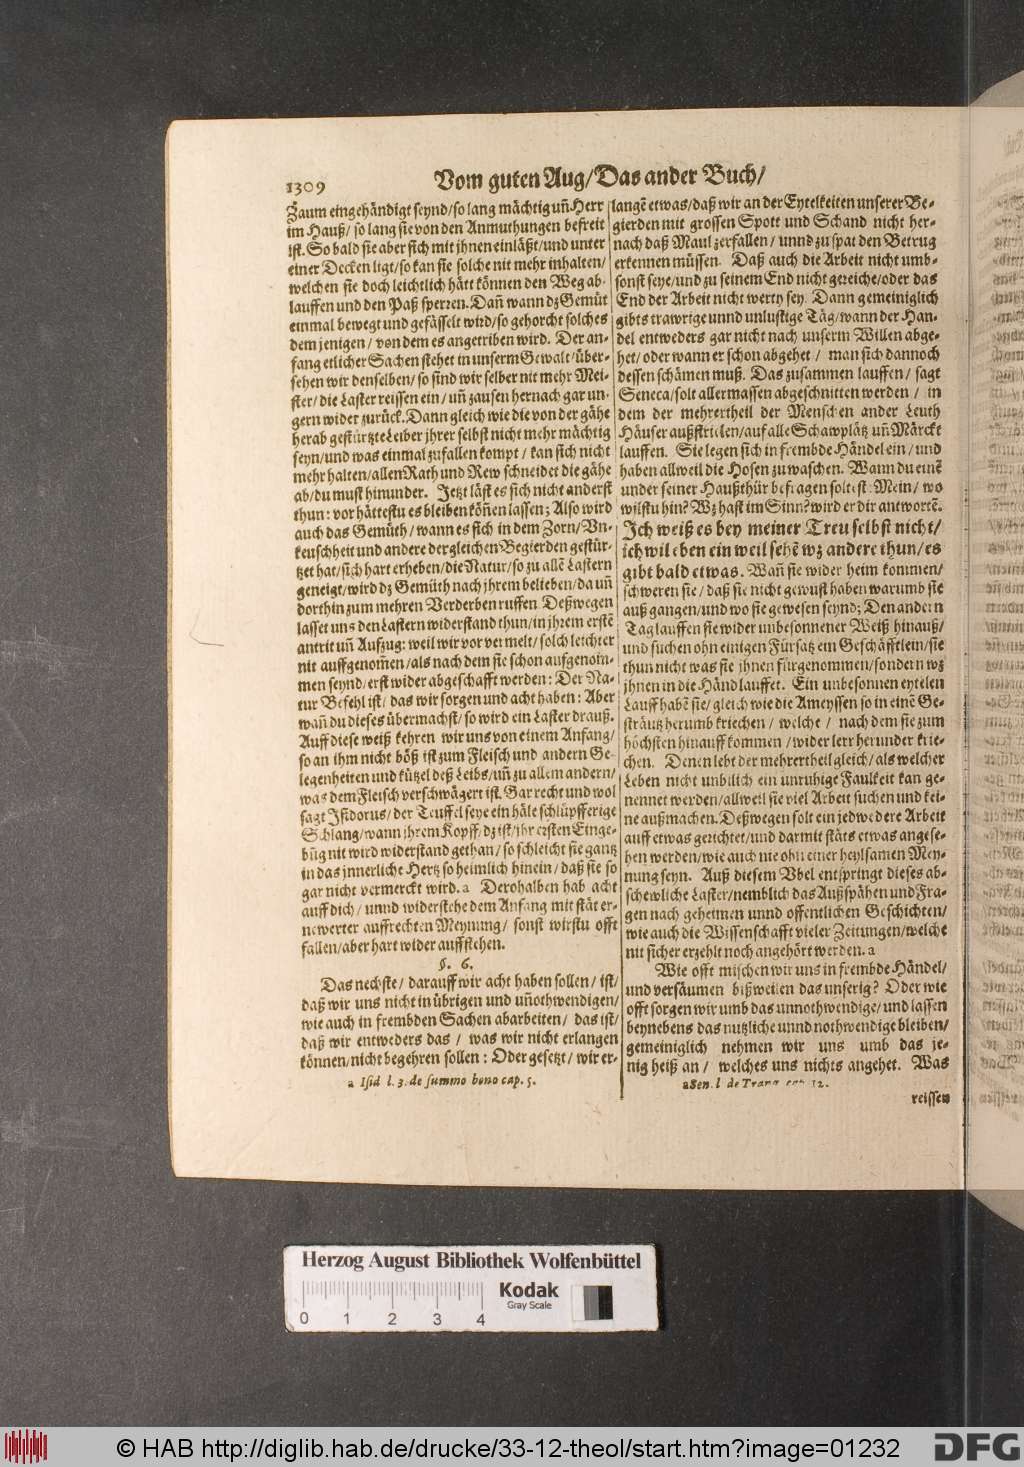 1309
Vom guten Aug/Das ander Buch/
Zaum eingehändigt seynd/so lang mächtig uñ Herr
im Hauß/ so lang sie von den Anmuthungen befreit
ist. So bald sie aber sich mit jhnen einläßt/und unter
einer Decken ligt/so kan sie solche nit mehr inhalten/
welchen sie doch leichtlich hätt können den Weg ab-
lauffen und den Paß sperren. Dañ wann dz Gemüt
einmal bewegt und gefässelt wird/so gehorcht solches
dem jenigen/ von dem es angetriben wird. Der an-
fang etlicher Sachen stehet in unserm Gewalt/über-
sehen wir denselben/so sind wir selber nit mehr Mei-
ster/die Laster reissen ein/ uñ zausen hernach gar un-
gern wider zurück. Dann gleich wie die von der gähe
herab gestürtzte Leiber jhrer selbst nicht mehr mächtig
seyn/und was einmal zufallen kompt/ kan sich nicht
mehr halten/allen Rath und Rew schneidet die gähe
ab/du must hinunder. Jetzt läst es sich nicht anderst
thun: vor hättestu es bleiben köñen lassen; Also wird
auch das Gemüth/wann es sich in dem Zorn/Un-
keuschheit und andere dergleichen Begierden gestür-
tzet hat/sich hart erheben/die Natur/so zu allē Lastern
geneigt/wird dz Gemüth nach jhrem belieben/da uñ
dorthin zum mehren Verderben ruffen. Deßwegen
lasset uns den Lastern widerstand thun/in jhrem erstē
antrit uñ Aufzug: weil wir vor vermelt/solch leichter
nit auffgenoñen/als nach dem sie schon aufgenom-
men seynd/erst wider abgeschafft werden: Der Na-
tur Befehl ist/ das wir sorgen und acht haben: Aber
wañ du dieses übermachst/so wird ein Laster drauß.
Auff diese weiß kehren wir uns von einem Anfang/
so an ihm nicht böß ist zum Fleisch und andern Ge-
legenheiten und kützel deß Leibs/uñ zu allem andern/
was dem Fleisch verschwägert ist. Gar recht und wol
sagt Isidorus/der Teuffel seye ein häle schlüpfferige
Schlang/wann jhrem Kopff/dz ist/jhr ersten Einge-
būg nit wird widerstand gethan/so schleicht sie gantz
in das jnnerliche Hertz so heimlich hinein/daß sie so
gar nicht vermerckt wird.a Derohalben hab acht
auff dich/ unnd widerstehe dem Anfang mit stät er-
newerter auffrechten Meynung/ sonst wirstu offt
fallen/aber hart wider auffstehen.
§. 6.
Das nechste/ darauff wir acht haben sollen/ ist/
daß wir uns nicht in übrigen und uñothwendigen/
wie auch in frembden Sachen abarbeiten/ das ist/
daß wir entweders das / was wir nicht erlangen
können/nicht begehren sollen: Oder gesetzt/wir er-
a Isid l. 3. de summo bono cap. 5.
langē etwas/daß wir an der Eytelkeiten unserer Be-
gierden mit grossen Spott und Schand nicht her-
nach daß Maul zerfallen/ unnd zu spat den Betrug
erkennen müssen. Daß auch die Arbeit nicht umb-
sonst seye/und zu seinem End nicht gereiche/oder das
End der Arbeit nicht werty sey. Dann gemeiniglich
gibts trawrige unnd unlustige Täg/wann der Han-
del entweders gar nicht nach unserm Willen abge-
het/oder wann er schon abgehet / man sich dannoch
dessen schämen muß. Das zusammen lauffen/ sagt
Seneca/solt allermassen abgeschnitten werden/ in
dem der mehrertheil der Menschen ander Leuth
Häuser außstrielen/auf alle Schawplätz uñ Märckt
lauffen. Sie legen sich in frembde Händel ein/und
haben allweil die Hosen zu waschen. Wann du einē
under seiner Haußthür befragen soltest: Mein/ wo
wilstu hin? Wz hast im Sinn? wird er dir antwortē.
Ich weiß es bey meiner Treu selbst nicht/
ich wil eben ein weil sehē wz andere thun/es
gibt bald etwas. Wañ sie wider heim kommen/
schweren sie/daß sie nicht gewust haben warumb sie
auß gangen/und wo sie gewesen seynd; Den andern
Tag lauffen sie wider unbesonnener Weiß hinauß/
und suchen ohn einigen Fürsatz ein Geschäfftlein/sie
thun nicht was sie jhnen fürgenommen/sondern wz
jhnen in die Händ lauffet. Ein unbesonnen eytelen
Lauff habē sie/gleich wie die Ameyssen so in einē Ge-
sträutz herumb kriechen/ welche / nach dem sie zum
höchsten hinauff kommen/wider lerr herunder krie-
chen. Denen lebt der mehrertheil gleich/als welcher
Leben nicht unbilich ein unruhige Faulkeit kan ge-
nennet werden/allweil sie viel Arbeit suchen und kei-
ne außmachen. Deßwegen solt ein jedwedere Arbeit
auff etwas gerichtet/und darmit stäts etwas angese-
hen werden/wie auch nie ohn einer heylsamen Mey-
nung seyn. Auß diesem Ubel entspringt dieses ab-
schewliche Laster/nemblich das Außspähen und Fra-
gen nach geheimen unnd offentlichen Geschichten/
wie auch die Wissenschafft vieler Zeitungen/welche
nit sicher erzehlt noch angehört werden. a
Wie offt mischen wir uns in frembde Händel/
und versäumen bißweilen das unserig? Oder wie
offt sorgen wir umb das unnothwendige/und lassen
beynebens das nutzliche unnd nothwendige bleiben/
gemeiniglich nehmen wir uns umb das je-
nig heiß an/ welches uns nichts angehet. Was
a Sen. l de Tranq. cap. 12.
reissen
Herzog August Bibliothek Wolfenbüttel
Kodak
Gray Scale
0 1 2 3 4
© HAB http://diglib.hab.de/drucke/33-12-theol/start.htm?image=01232
DFG